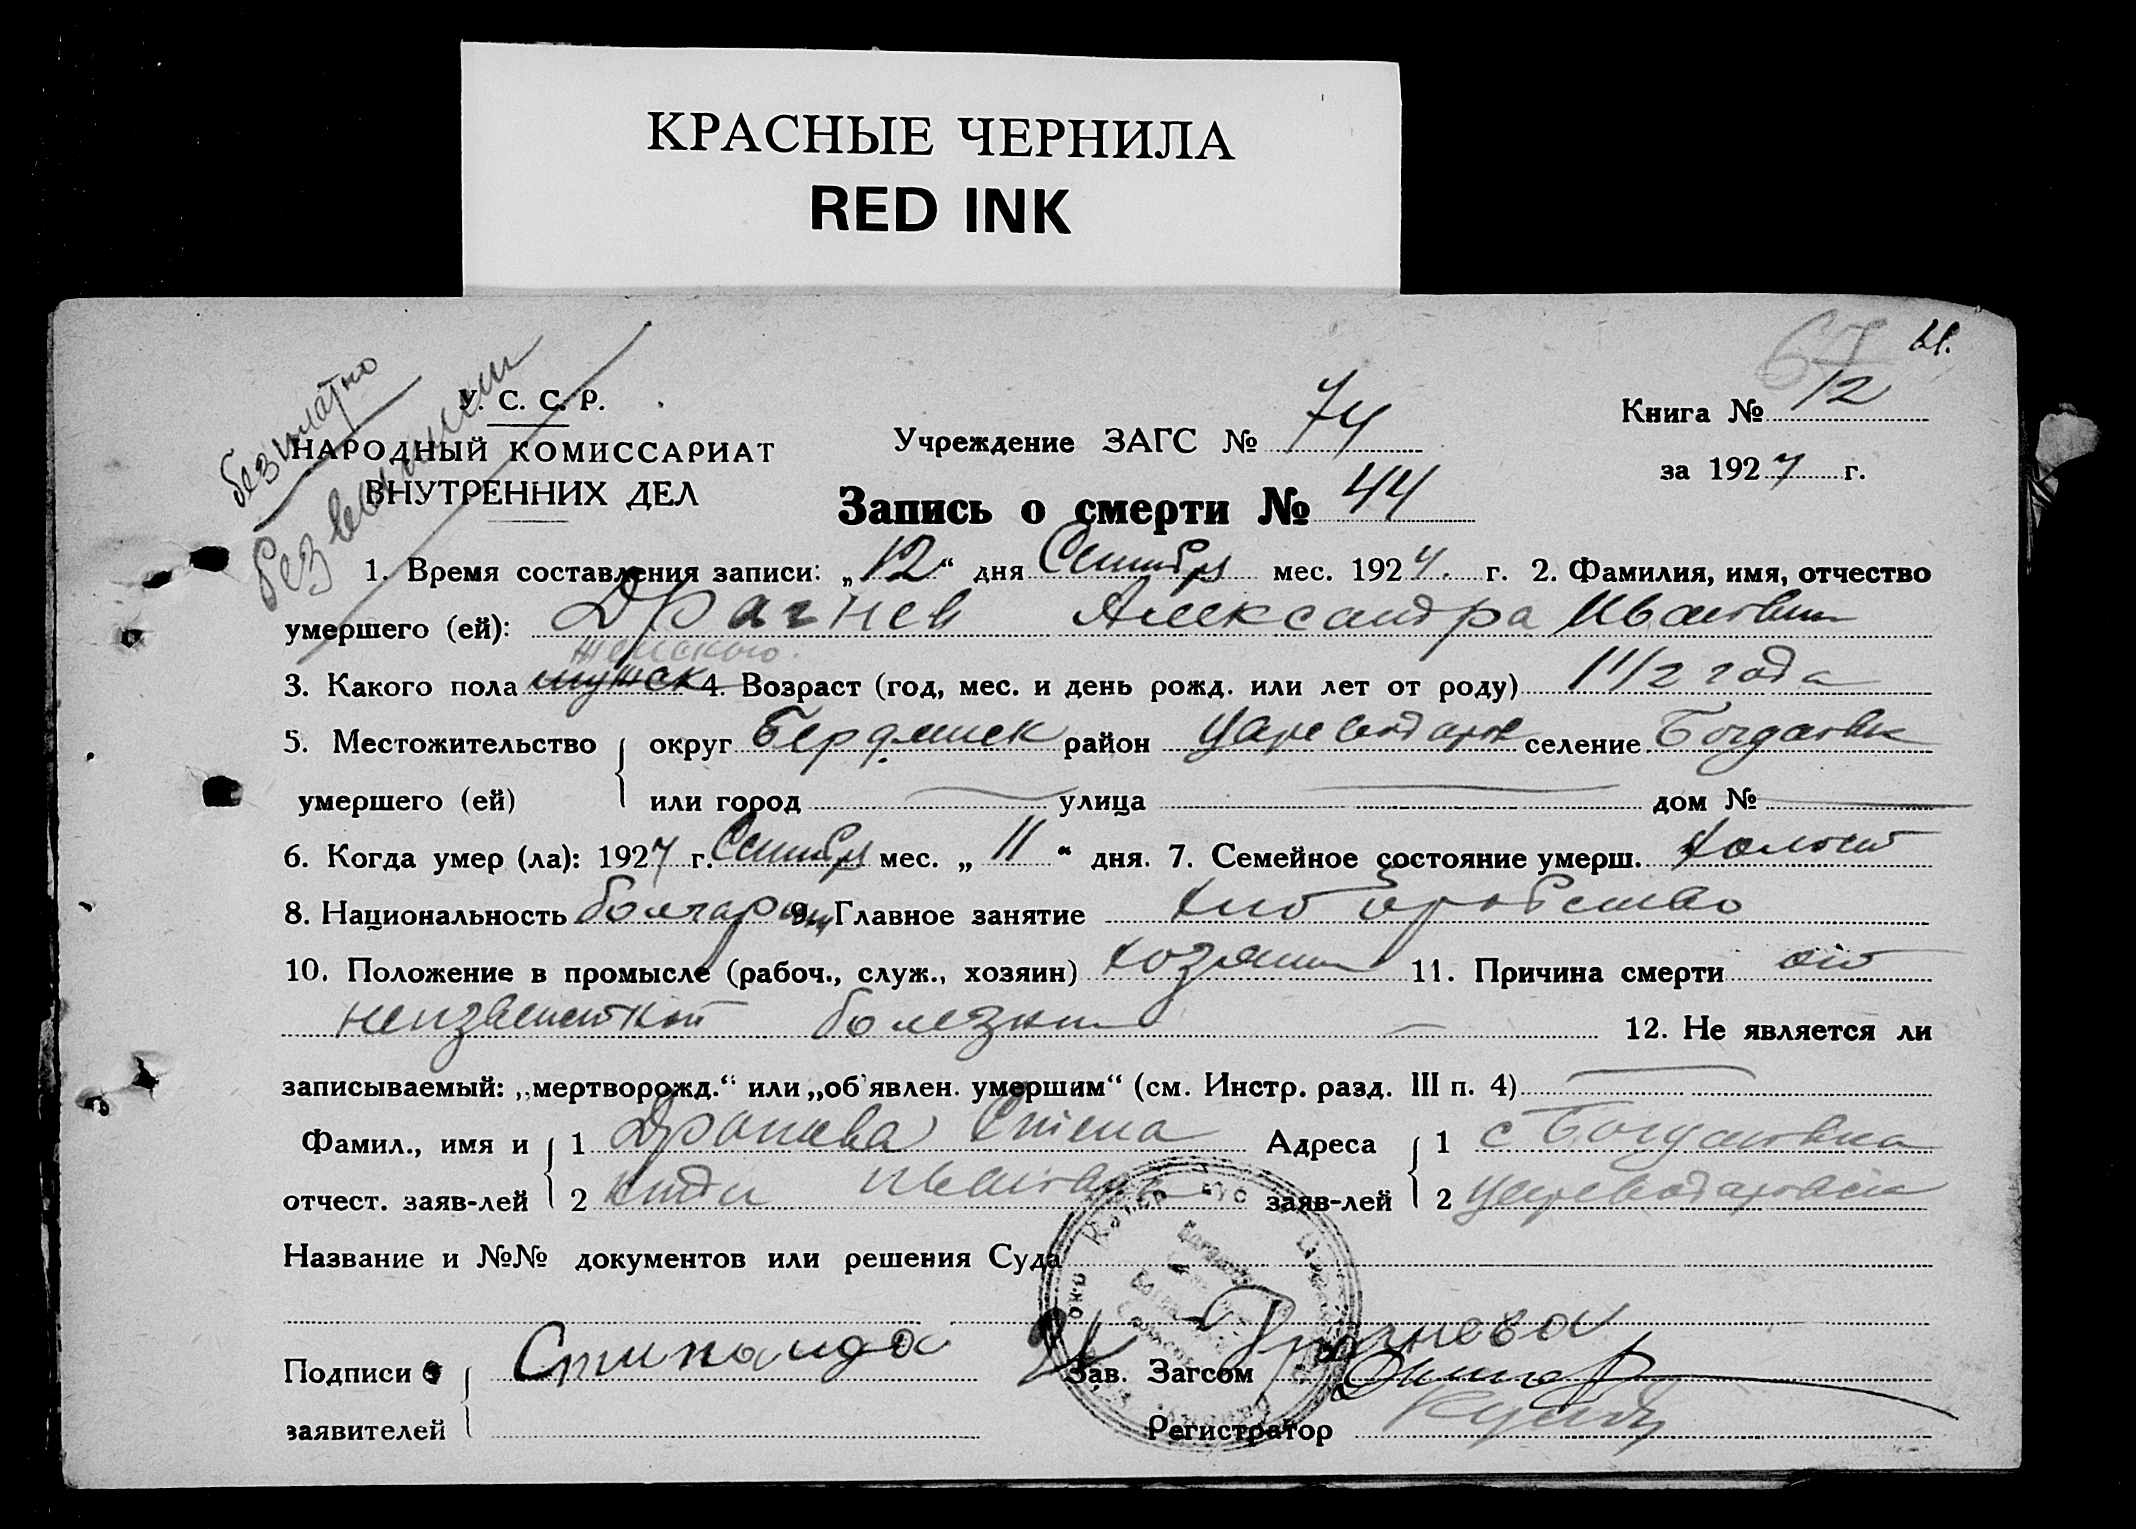 КРАСНЫЕ ЧЕРНИЛА
RED INK
67 61.
безплатно
У. С. С. Р.
НАРОДНЫЙ КОМИССАРИАТ
ВНУТРЕННИХ ДЕЛ
Учреждение ЗАГС № 74
Книга № 12
за 1927 г.
Запись о смерти № 44
1. Время составления записи: „12“ дня Сентября мес. 1927. г. 2. Фамилия, имя, отчество
умершего (ей): Драгнев Александра Ивановна
женского.
3. Какого пола мужск 4. Возраст (год, мес. и день рожд. или лет от роду) 1 1/2 года
5. Местожительство округ Бердянск район Цареводаров селение Богдановка
умершего (ей) или город — улица — дом № —
6. Когда умер (ла): 1927 г. Сентября мес. „11“ дня. 7. Семейное состояние умерш. холост
8. Национальность болгарин 9. Главное занятие хлеборобство
10. Положение в промысле (рабоч., служ., хозяин) хозяин 11. Причина смерти от
неизвестной болезни — 12. Не является ли
записываемый: „мертворожд.“ или „об'явлен. умершим“ (см. Инстр. разд. III п. 4) —
Фамил., имя и 1 Драгнева Адреса 1 с Богдановка
отчест. заяв-лей 2 заяв-лей 2 Цареводаровск
Название и №№ документов или решения Суда
Подписи Драгнева Зав. Загсом
заявителей Регистратор